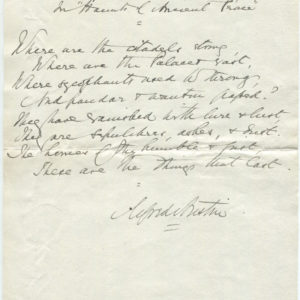 In "Haunts of Ancient Peace"
Where are the citadels strong
Where are the Palaces vast,
Where sycophants used to throng,
And pandar & wanton passed?
They have vanished with lure & lust
They are sepulchres, ashes, & dust.
The homes of the humble & just
These are the things that last.
Alfred Austin